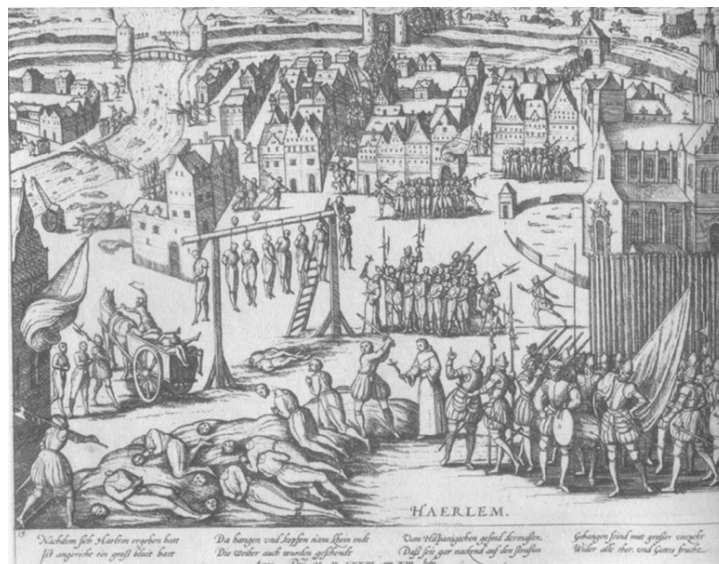 HAERLEM.
Nachdem sich Harlem ergeben hatt
Ist angericht ein groß bluit batt
Da hangen vnd kopfen nam khein endt
Die weiber auch wurden geschendt
Vom Hispanischen gesind dermaßen.
Daß seie gar nackend auf den straßen
Gehangen seind mit großer
Wider alle eher, vnd Gottes